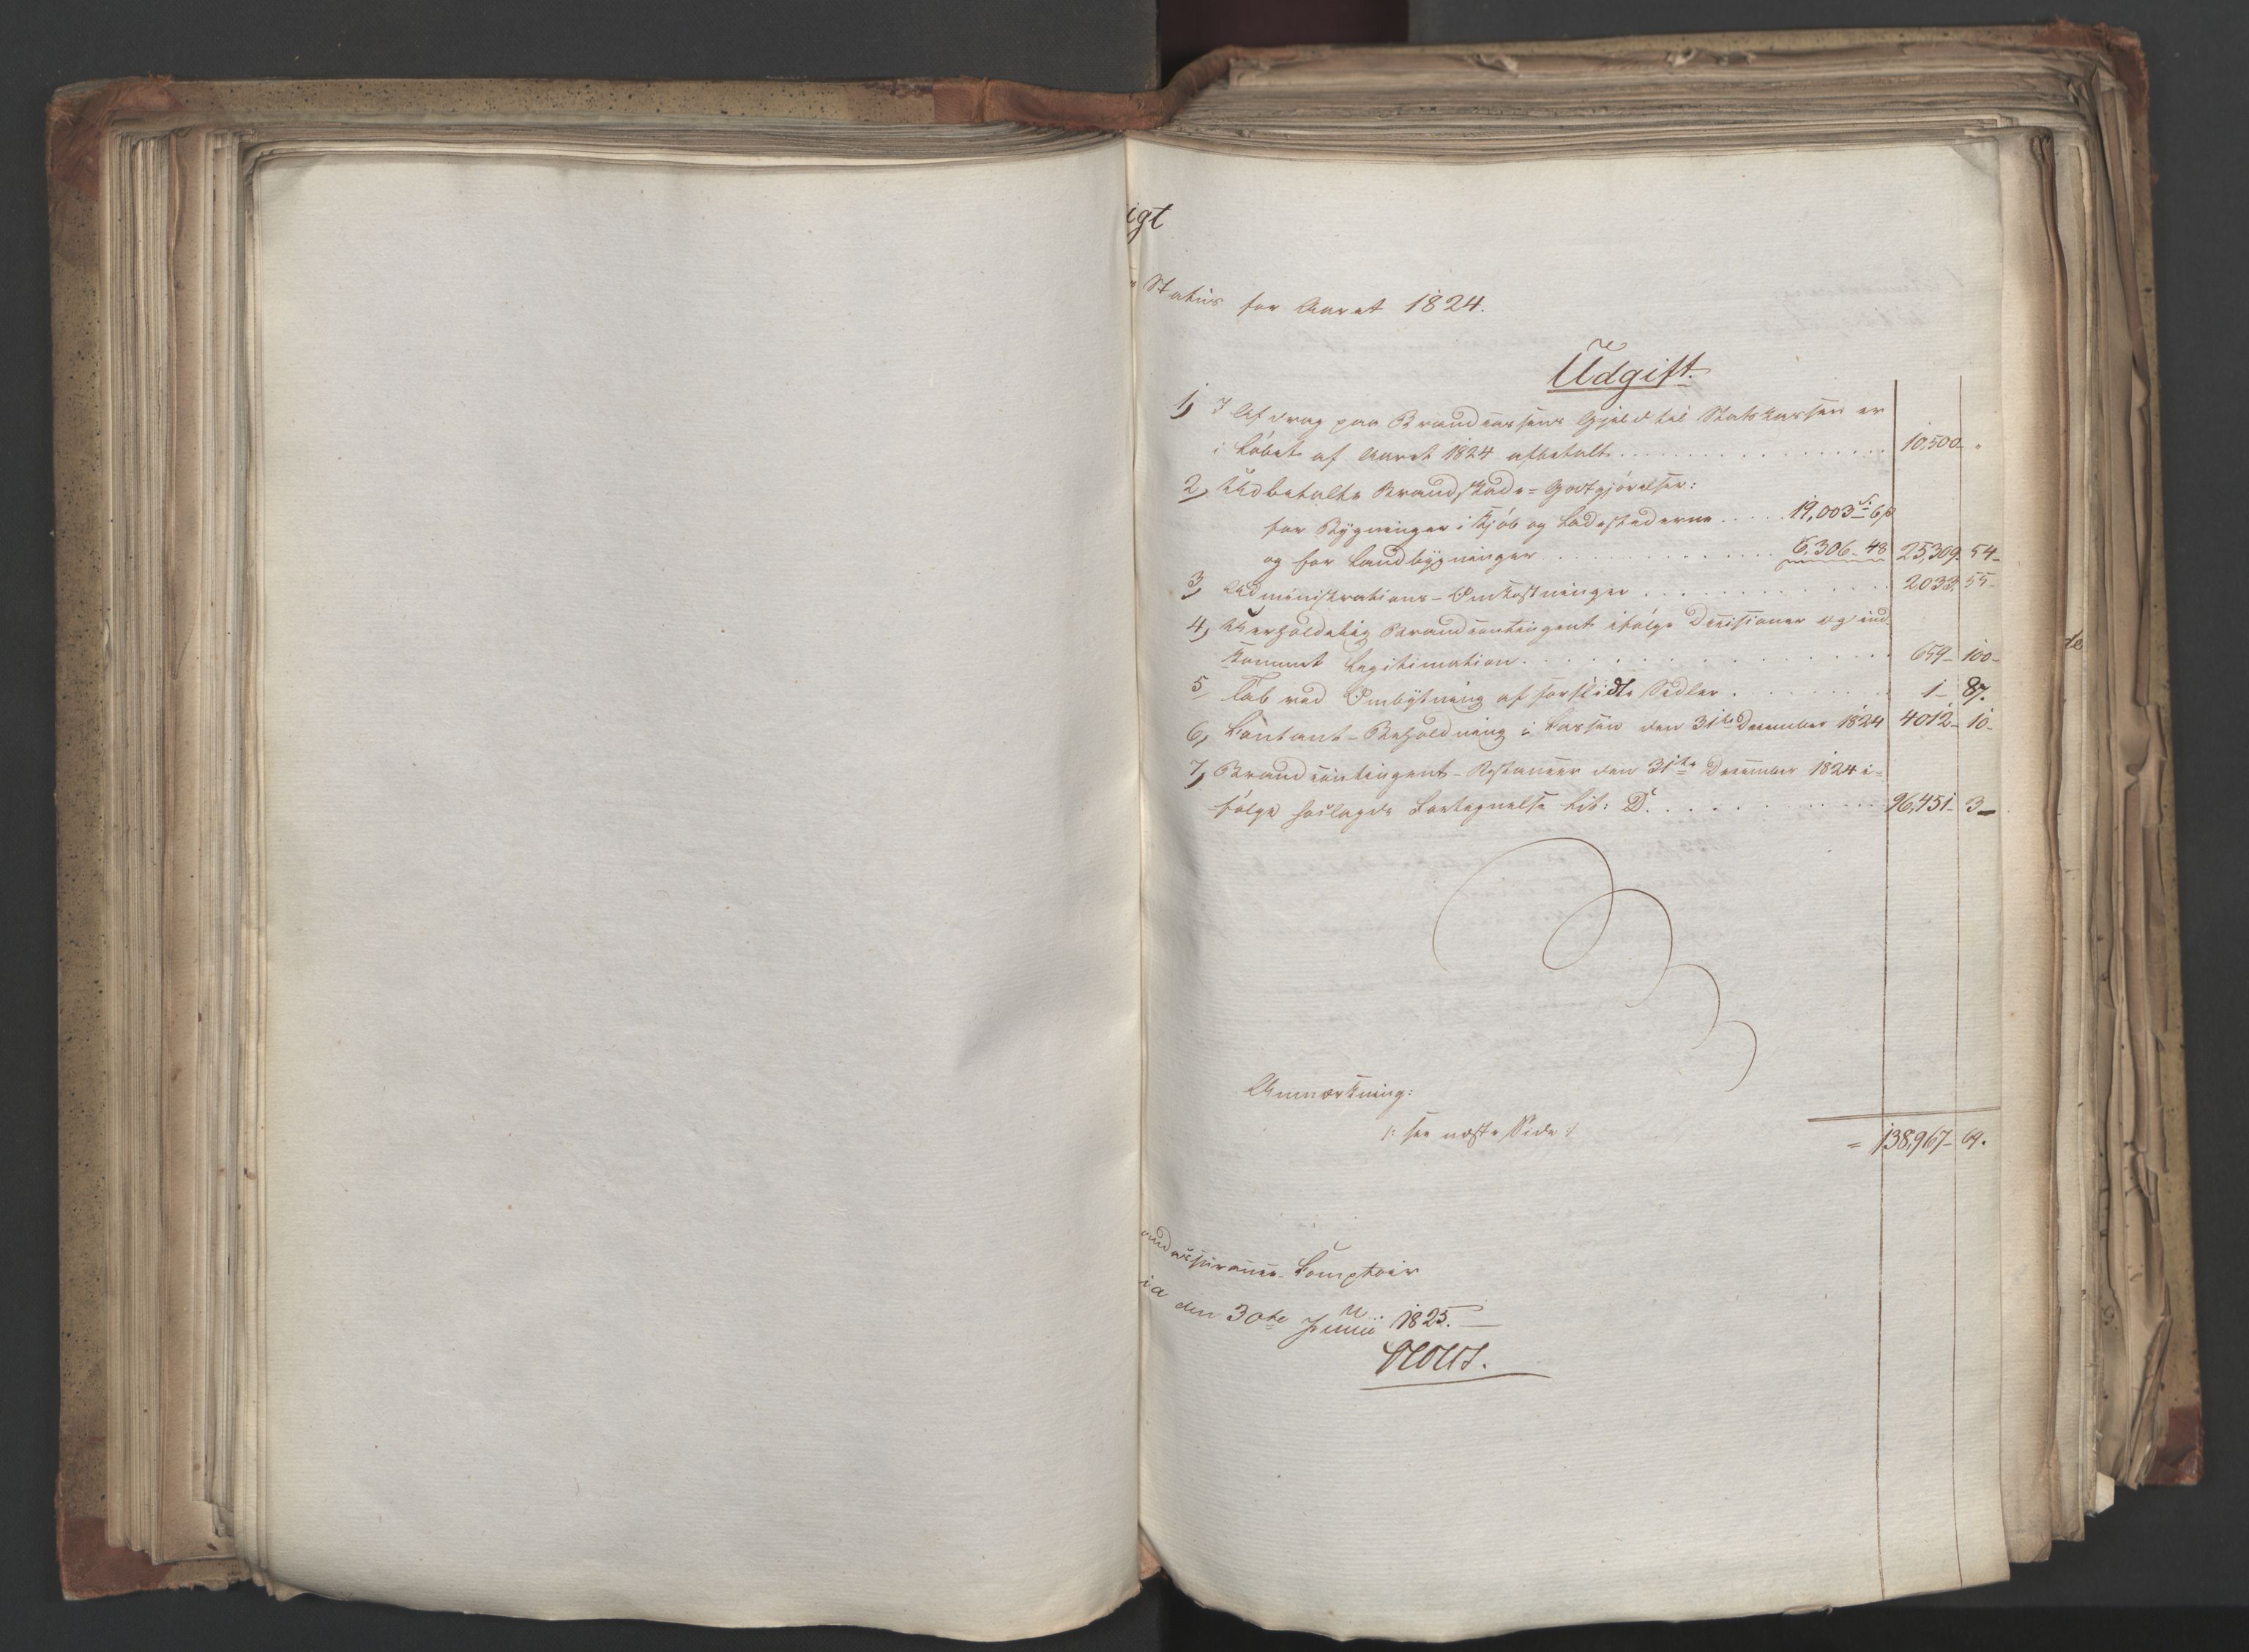 igt
Status for Aaret 1824.
Udgift.
1) I Afdrag paa Brandcassens Gjeld til Statskassen er
i Løbet af Aaret 1824 afbetalt . . . . . 10,500 - "
2) Udbetalte Brandskade-Godtgjørelser:
for Bygninger i Kjøb og Ladestederne . . . . 19,003 - 6
og for Landbygninger . . . . . 6,306 - 48 25,309 - 54 -
3) Administrations-Omkostninger . . . . . 2033 - 55 -
4) Uerholdelig Brandcontingent ifølge Decisioner og ind-
kommet Legitimation . . . . . 659 - 100 -
5, Tab ved Ombytning af forslidte Sedler . . . . . 1 - 87.
6, Contant-Beholdning i Cassen den 31te December 1824 4012 - 10 -
7, Brandcontingent-Restancer den 31te December 1824 i-
følge hoslagde Fortegnelse Lit: D. . . . . 96,451 - 3 -
Anmærkning:
/: see næste Side :/
= 138,967 - 69.
andassurance-Comptoir
ia den 30te Junii 1825.
de